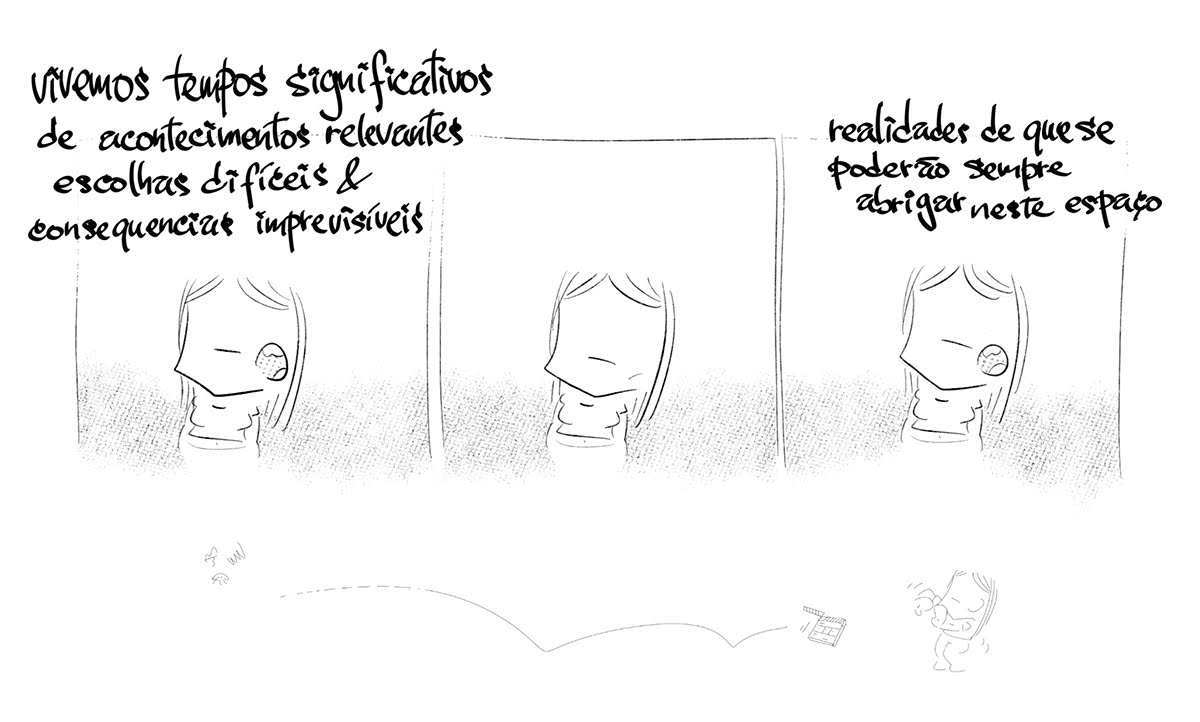 vivemos tempos significativos
de acontecimentos relevantes
escolhas difíceis &
consequencias imprevisíveis
realidades de que se
poderão sempre
abrigar neste espaço